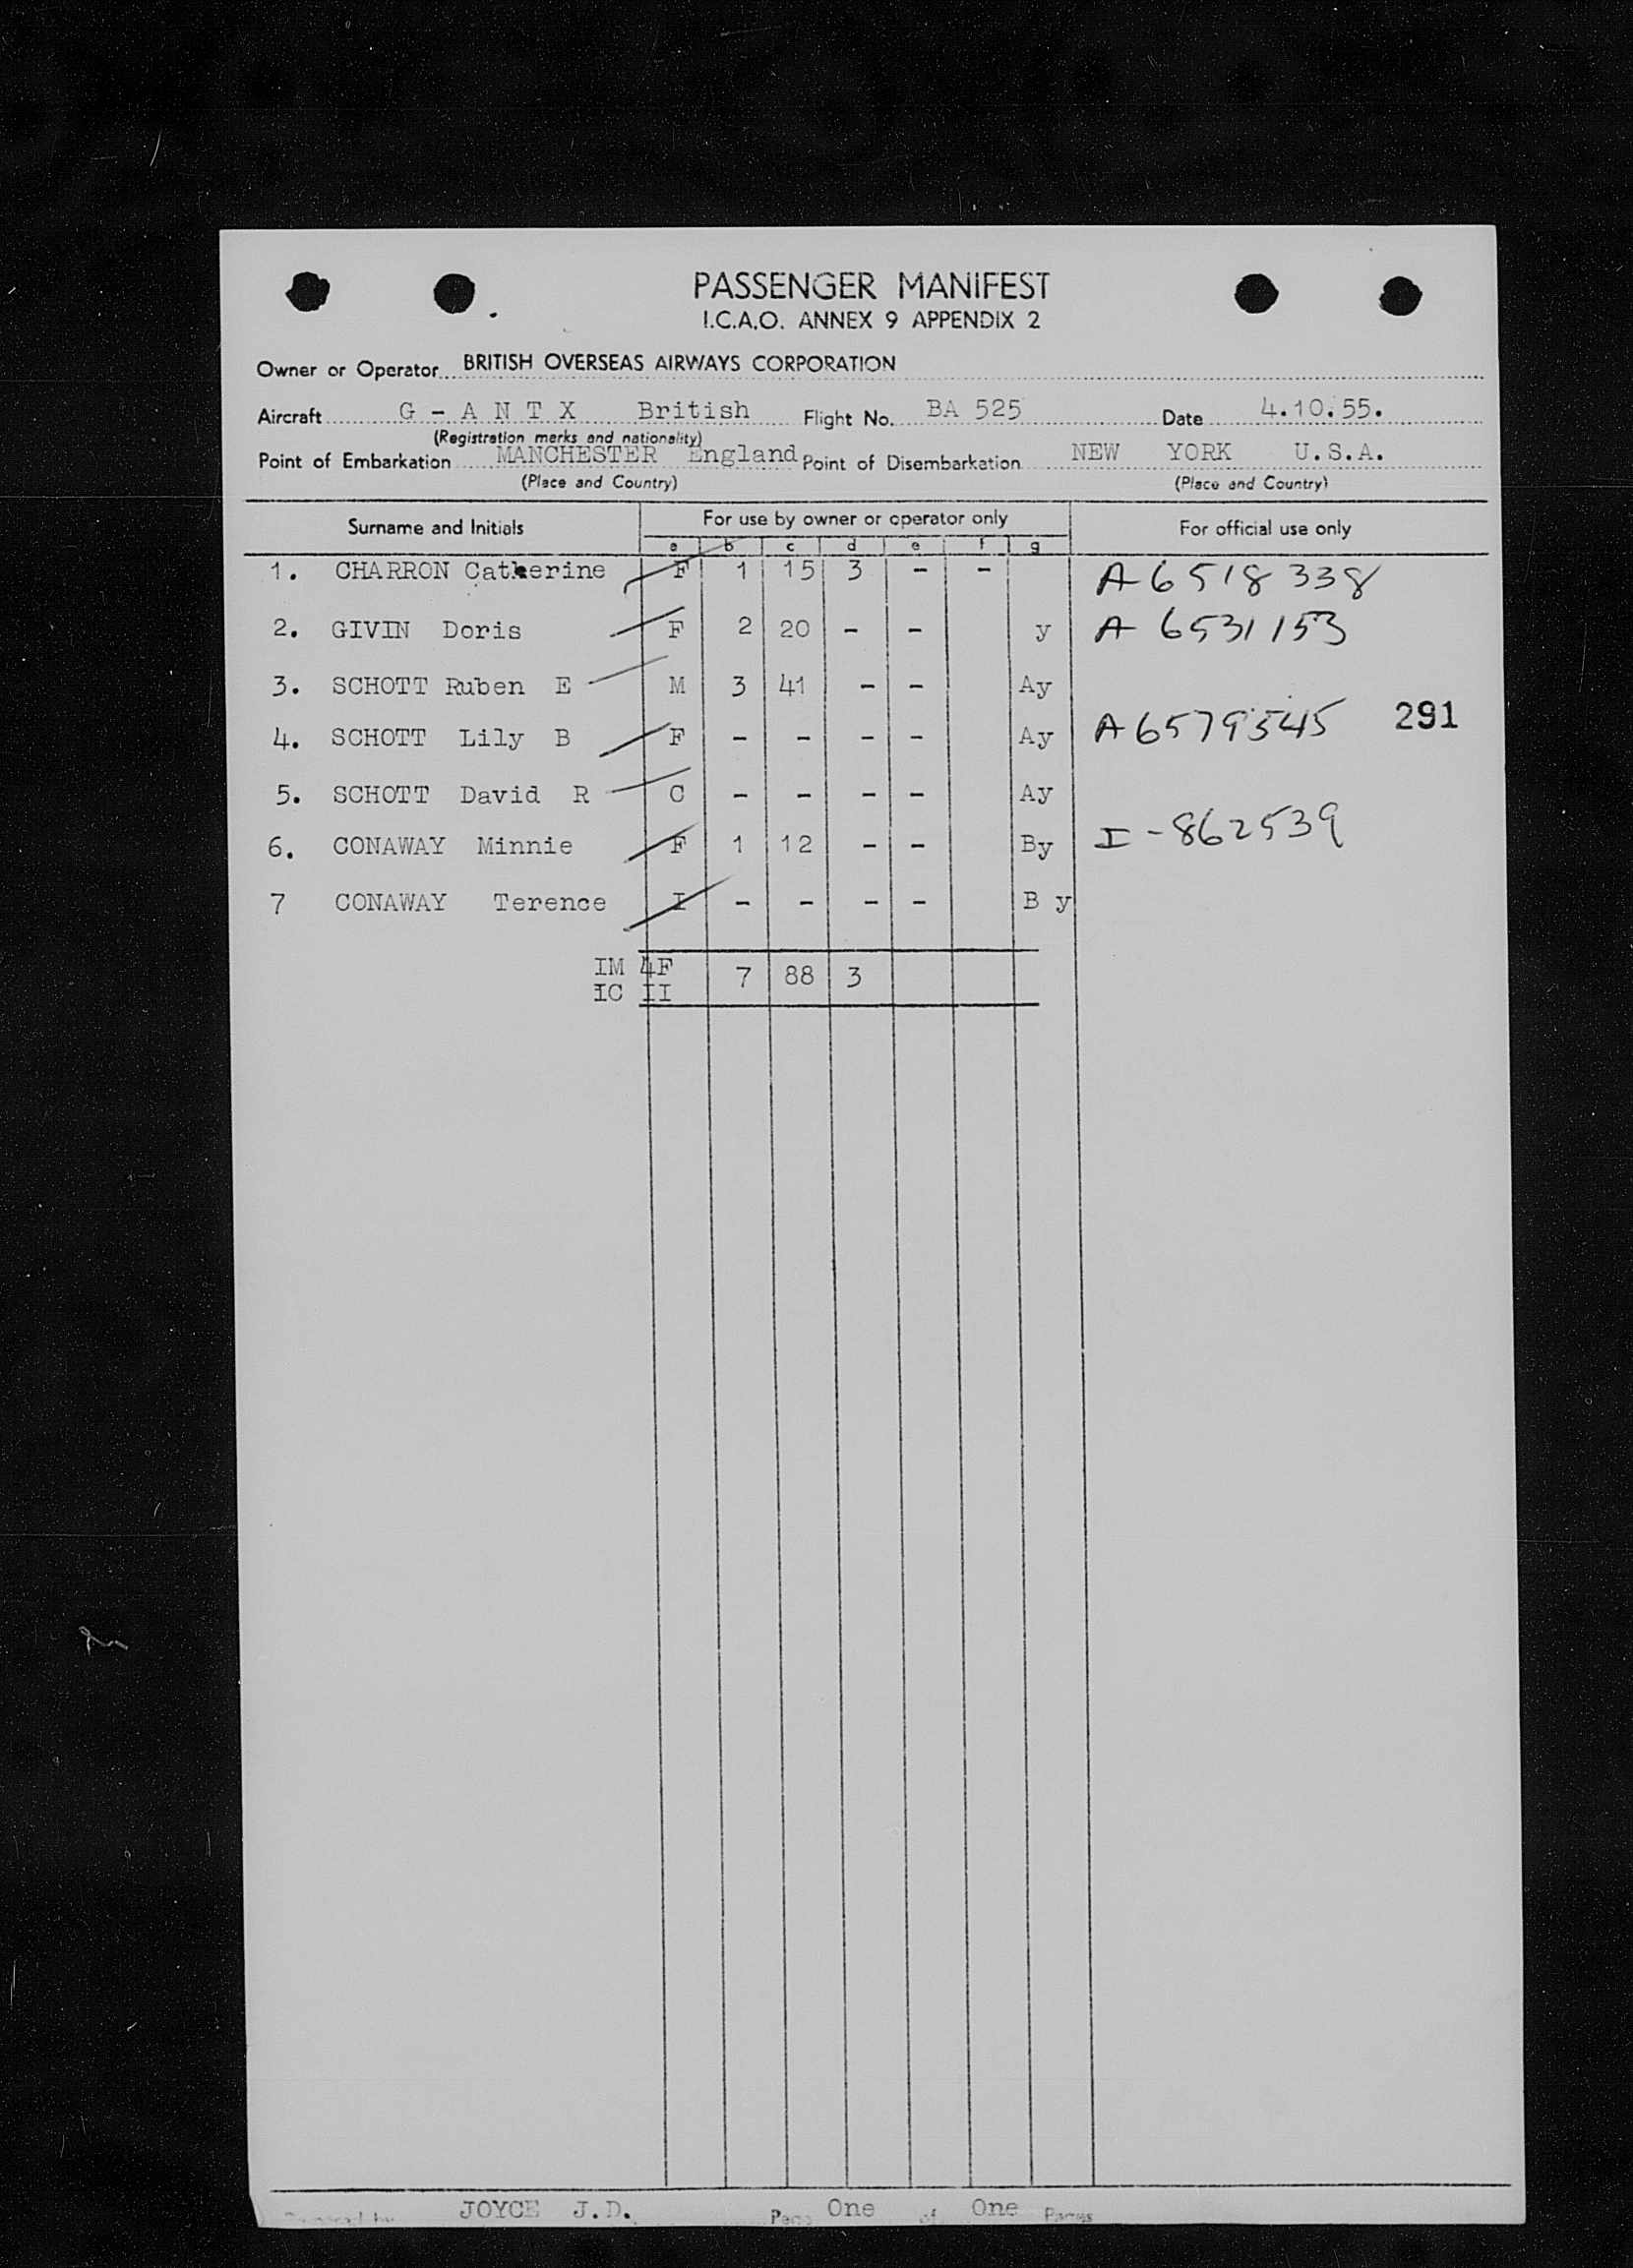 PASSENGER MANIFEST
I.C.A.O. ANNEX 9 APPENDIX 2
Owner or Operator BRITISH OVERSEAS AIRWAYS CORPORATION
Aircraft G - A N T X British Flight No. BA 525 Date 4.10.55.
(Registration marks and nationality)
Point of Embarkation MANCHESTER England Point of Disembarkation NEW YORK U.S.A.
(Place and Country) (Place and Country)
Surname and Initials For use by owner or operator only For official use only
a b c d e f g
1. CHARRON Catherine F 1 15 3 - - A6518338
2. GIVIN Doris F 2 20 - - y A 6531153
3. SCHOTT Ruben E M 3 41 - - Ay
4. SCHOTT Lily B F - - - - Ay A6579545 291
5. SCHOTT David R C - - - - Ay
6. CONAWAY Minnie F 1 12 - - By I-862539
7 CONAWAY Terence I - - - - B y
IM 4F 7 88 3
IC II
JOYCE J.D. Page One of One Pages